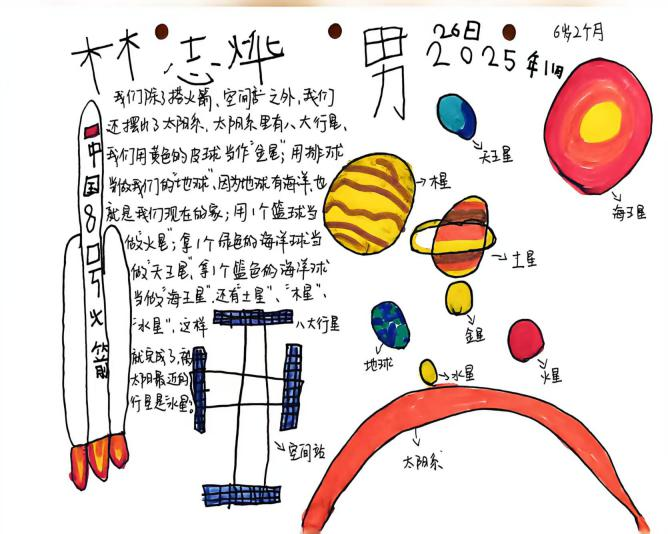 林志烨 男 26日
2025年11月
6岁2个月
我们除了搭火箭、空间站之外,我们
还摆出了太阳系,太阳系里有八大行星、
我们用黄色的皮球当作“金星”;用排球
当做我们的“地球”,因为地球有海洋,也
就是我们现在的家;用1个篮球当
做“火星”;拿1个绿色的海洋球当
做“天王星”,拿1个蓝色的海洋球
当做“海王星”,还有“土星”、“木星”、
“水星”,这样八大行星
就完成了,离
太阳最近的
行星是“水星”。
中国80号火箭
天王星
海王星
木星
土星
金星
地球
火星
水星
太阳系
空间站